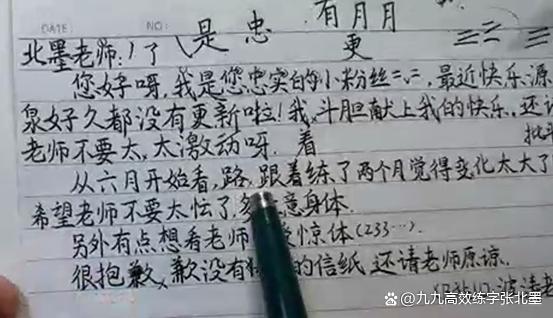 DATE: NO:
了 是 忠 有 月 月
更
北墨老师:
您好呀,我是您忠实的小粉丝二.二,最近快乐源
泉好久都没有更新啦!我,斗胆献上我的快乐,还
老师不要太,太激动呀. 着
从六月开始看,路,跟着练了两个月觉得变化太大了
希望老师不要太怯了,多 意身体.
另外有点想看老师 惊体(233…).
很抱歉,歉没有 的信纸 还请老师原谅.
九九高效练字张北墨